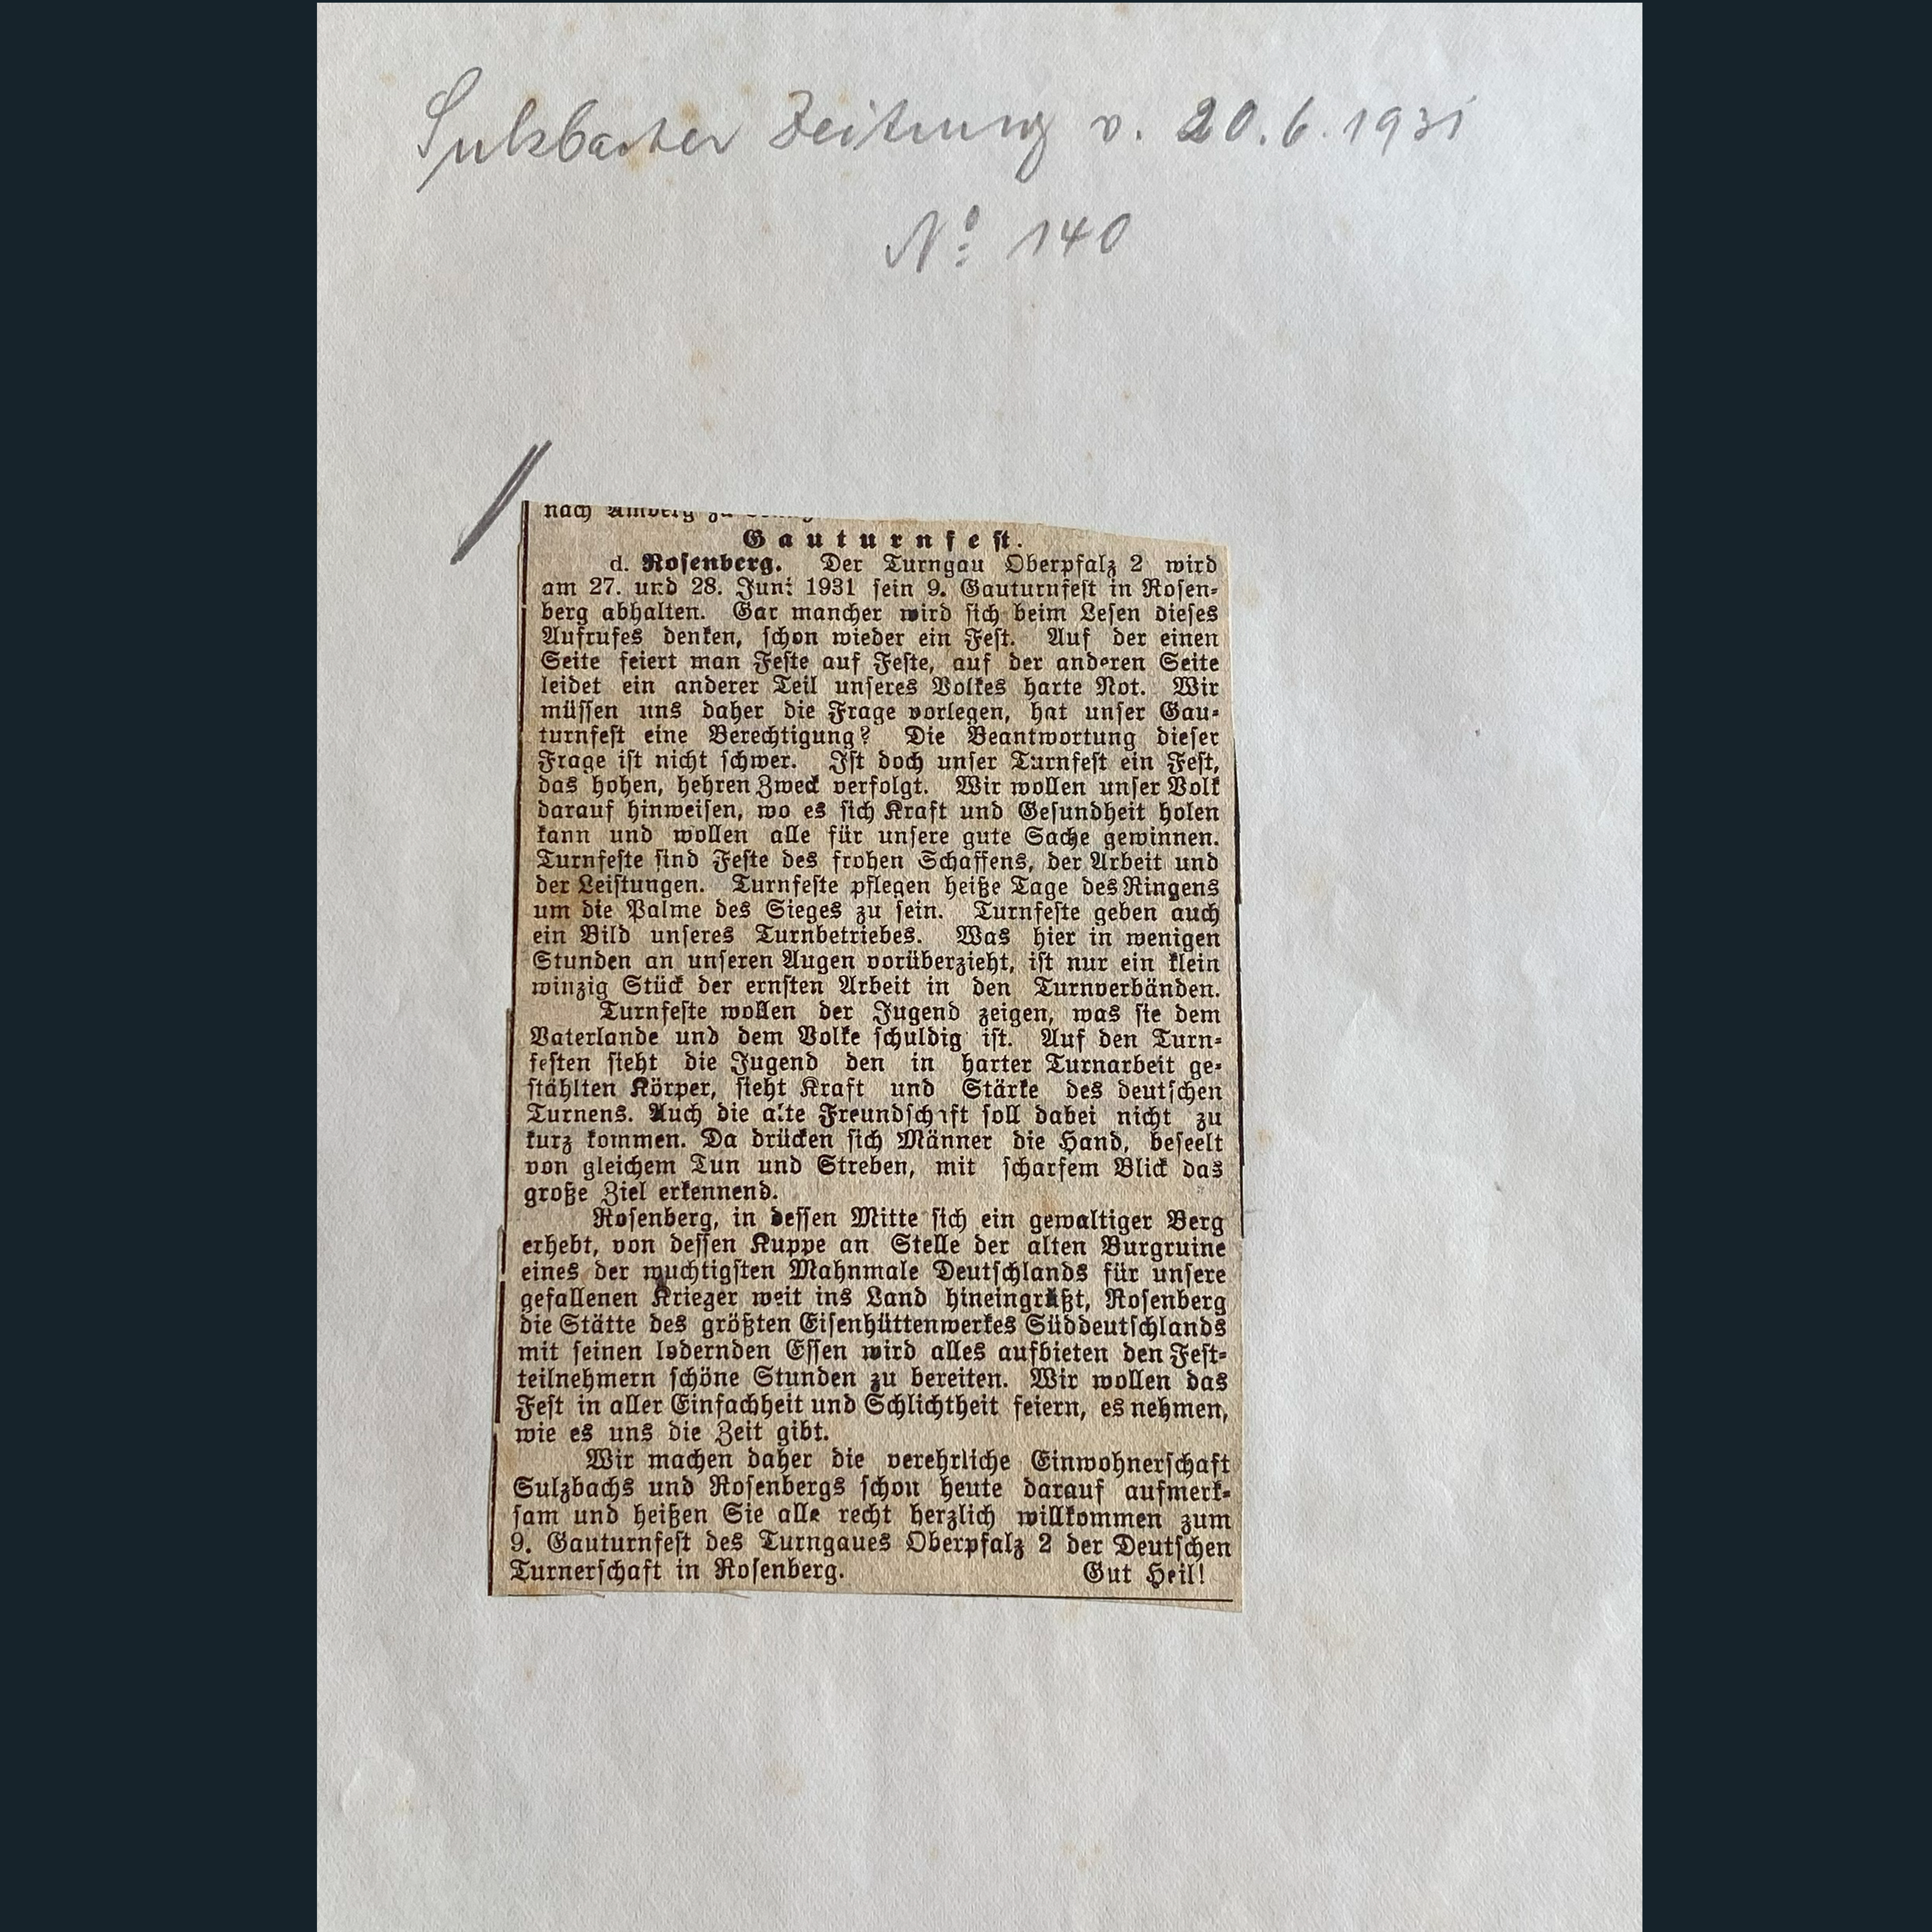 Sulzbacher Zeitung v. 20.6.1931
No 140
nach Amberg zu
Gauturnfest.
d. Rosenberg. Der Turngau Oberpfalz 2 wird
am 27. und 28. Juni 1931 sein 9. Gauturnfest in Rosen-
berg abhalten. Gar mancher wird sich beim Lesen dieses
Aufrufes denken, schon wieder ein Fest. Auf der einen
Seite feiert man Feste auf Feste, auf der anderen Seite
leidet ein anderer Teil unseres Volkes harte Not. Wir
müssen uns daher die Frage vorlegen, hat unser Gau-
turnfest eine Berechtigung? Die Beantwortung dieser
Frage ist nicht schwer. Ist doch unser Turnfest ein Fest,
das hohen, hehren Zweck verfolgt. Wir wollen unser Volk
darauf hinweisen, wo es sich Kraft und Gesundheit holen
kann und wollen alle für unsere gute Sache gewinnen.
Turnfeste sind Feste des frohen Schaffens, der Arbeit und
der Leistungen. Turnfeste pflegen heiße Tage des Ringens
um die Palme des Sieges zu sein. Turnfeste geben auch
ein Bild unseres Turnbetriebes. Was hier in wenigen
Stunden an unseren Augen vorüberzieht, ist nur ein klein
winzig Stück der ernsten Arbeit in den Turnverbänden.
Turnfeste wollen der Jugend zeigen, was sie dem
Vaterlande und dem Volke schuldig ist. Auf den Turn-
festen sieht die Jugend den in harter Turnarbeit ge-
stählten Körper, sieht Kraft und Stärke des deutschen
Turnens. Auch die alte Freundschaft soll dabei nicht zu
kurz kommen. Da drücken sich Männer die Hand, beseelt
von gleichem Tun und Streben, mit scharfem Blick das
große Ziel erkennend.
Rosenberg, in dessen Mitte sich ein gewaltiger Berg
erhebt, von dessen Kuppe an Stelle der alten Burgruine
eines der wuchtigsten Mahnmale Deutschlands für unsere
gefallenen Krieger weit ins Land hineingrüßt, Rosenberg
die Stätte des größten Eisenhüttenwerkes Süddeutschlands
mit seinen lodernden Essen wird alles aufbieten den Fest-
teilnehmern schöne Stunden zu bereiten. Wir wollen das
Fest in aller Einfachheit und Schlichtheit feiern, es nehmen,
wie es uns die Zeit gibt.
Wir machen daher die verehrliche Einwohnerschaft
Sulzbachs und Rosenbergs schon heute darauf aufmerk-
sam und heißen Sie alle recht herzlich willkommen zum
9. Gauturnfest des Turngaues Oberpfalz 2 der Deutschen
Turnerschaft in Rosenberg. Gut Heil!